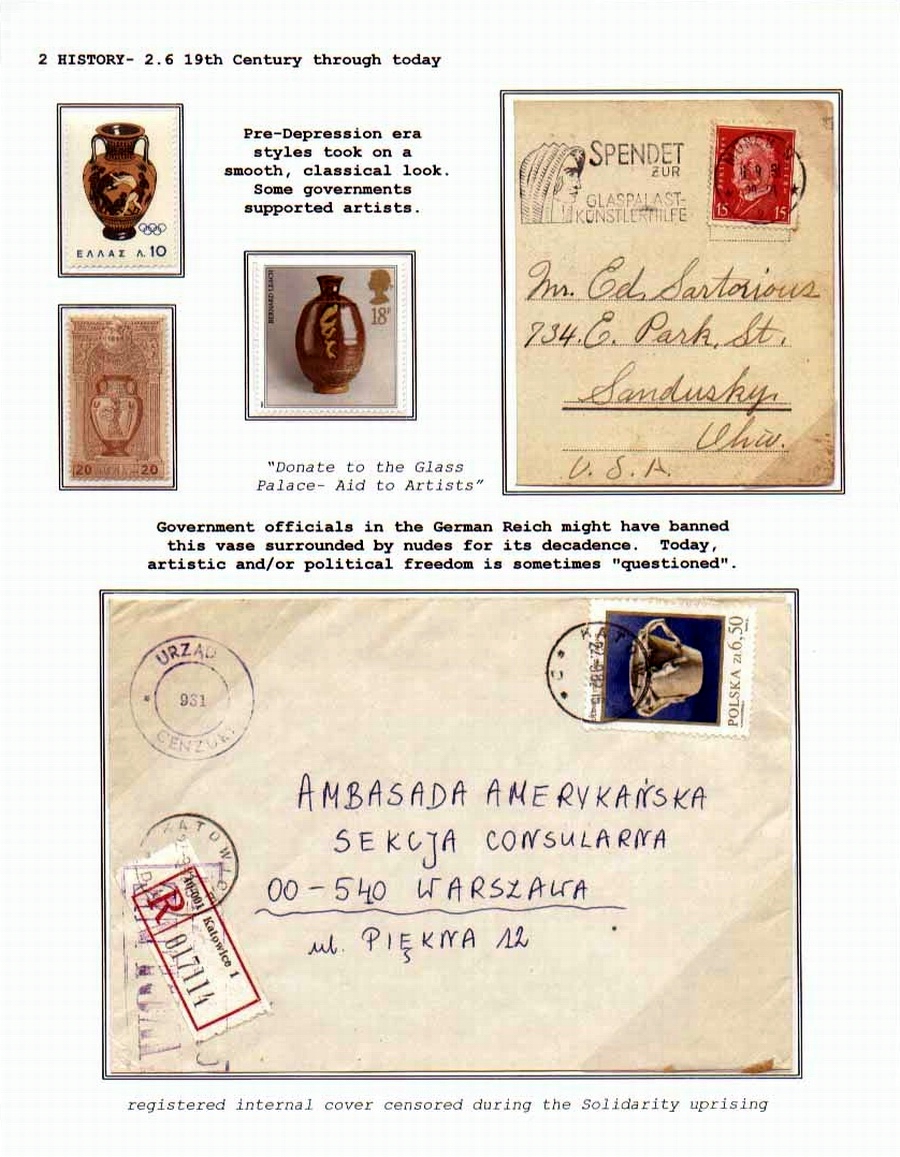 2 HISTORY- 2.6 19th Century through today
ΕΛΛΑΣ Λ.10
Pre-Depression era
styles took on a
smooth, classical look.
Some governments
supported artists.
BERNARD LEACH
18P
20 20
"Donate to the Glass
Palace- Aid to Artists"
SPENDET
ZUR
GLASPALAST-
KÜNSTLERHILFE
15 15
Mr. Ed. Sartorious
734. E. Park. St.
Sandusky.
Ohio.
U. S. A.
Government officials in the German Reich might have banned
this vase surrounded by nudes for its decadence. Today,
artistic and/or political freedom is sometimes "questioned".
URZĄD
931
CENZURY
KAT
POLSKA zł 6,50
AMBASADA AMERYKAŃSKA
SEKCJA CONSULARNA
00-540 WARSZAWA
ul. PIĘKNA 12
KATOWICE
R
40-001 Katowice 1
017114
registered internal cover censored during the Solidarity uprising